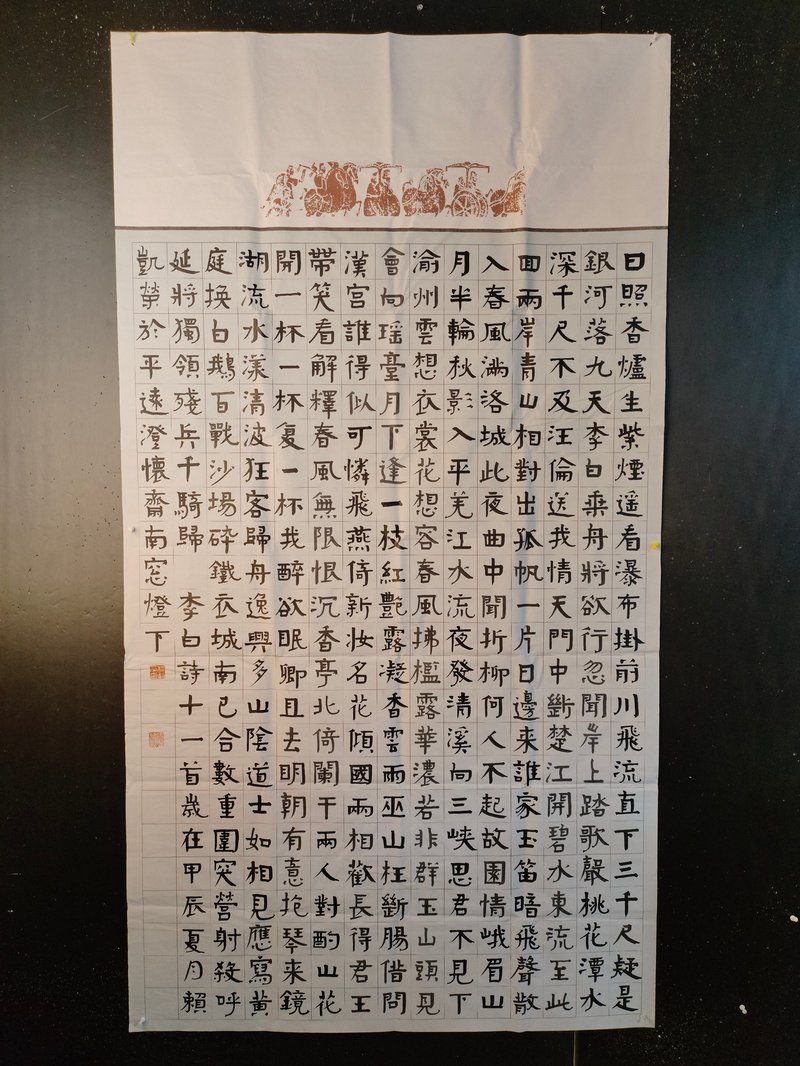 日照香爐生紫煙遥看瀑布掛前川飛流直下三千尺疑是
銀河落九天李白乘舟將欲行忽聞岸上踏歌聲桃花潭水
深千尺不及汪倫送我情天門中斷楚江開碧水東流至此
回兩岸青山相對出孤帆一片日邊来誰家玉笛暗飛聲散
入春風滿洛城此夜曲中聞折柳何人不起故園情峨眉山
月半輪秋影入平羌江水流夜發清溪向三峡思君不見下
渝州雲想衣裳花想容春風拂檻露華濃若非群玉山頭見
會向瑶臺月下逢一枝紅艷露凝香雲雨巫山枉斷腸借問
漢宮誰得似可憐飛燕倚新妝名花傾國兩相歡長得君王
帶笑看解釋春風無限恨沉香亭北倚闌干兩人對酌山花
開一杯一杯復一杯我醉欲眠卿且去明朝有意抱琴來鏡
湖流水漾清波狂客歸舟逸興多山陰道士如相見應寫黄
庭換白鵝百戰沙場碎鐵衣城南已合數重圍突營射殺呼
延將獨領殘兵千騎歸 李白詩十一首歲在甲辰夏月賴
凱榮於平遠澄懷齋南窓燈下